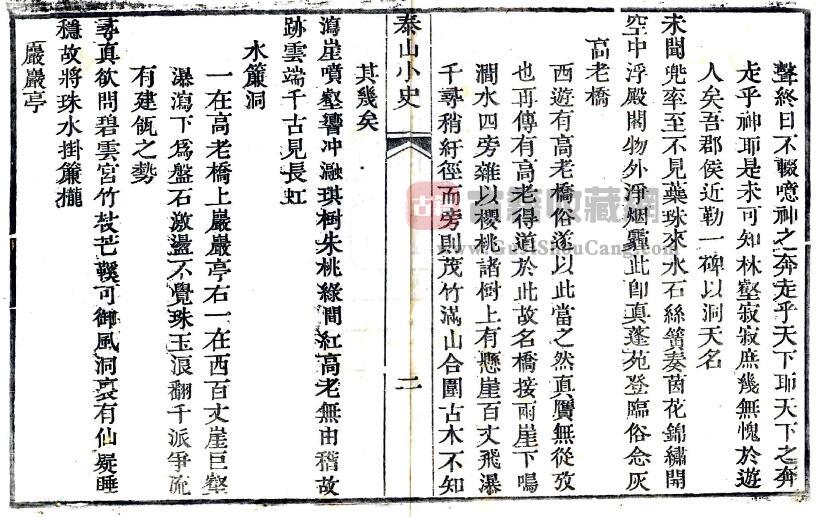 聲終日不輟噫神之奔走乎天下耶天下之奔
走乎神耶是未可知林壑寂寂庶幾無愧於遊
人矣吾郡侯近勒一碑以洞天名
未聞兜率至不見蘂珠來水石絲簧奏茵花錦繡開
空中浮殿閣物外淨烟霾此卽真蓬苑登臨俗念灰
高老橋
西遊有高老橋俗遂以此當之然真贗無從攷
也再傳有高老得道於此故名橋接兩崖下鳴
澗水四旁雜以櫻桃諸樹上有懸崖百丈飛瀑
千尋稍紆徑而旁則茂竹滿山合圍古木不知
泰山小史
二
其幾矣
瀉崖噴壑響冲瀜琪樹朱桃綠間紅高老無由稽故
跡雲端千古見長虹
水簾洞
一在高老橋上巖巖亭右一在西百丈崖巨壑
瀑瀉下爲盤石激盪不覺珠玉浪翻千派爭流
有建瓴之勢
尋真欲問碧雲宮竹杖芒鞵可御風洞裏有仙疑睡
穩故將珠水掛簾櫳
巖巖亭
古籍
古籍收藏網
www.GuJiShouCang.com